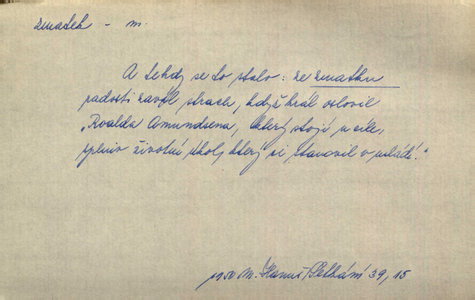 zmatek - m.
A tehdy se to stalo: ze zmatku
radosti zavřel strach, když král oslovil
„Roalda Amundsena, který stojí u cíle,
splniv životní úkol, který si stanovil v mládí."
1950 M. Hanuš, Setkání 39, 15